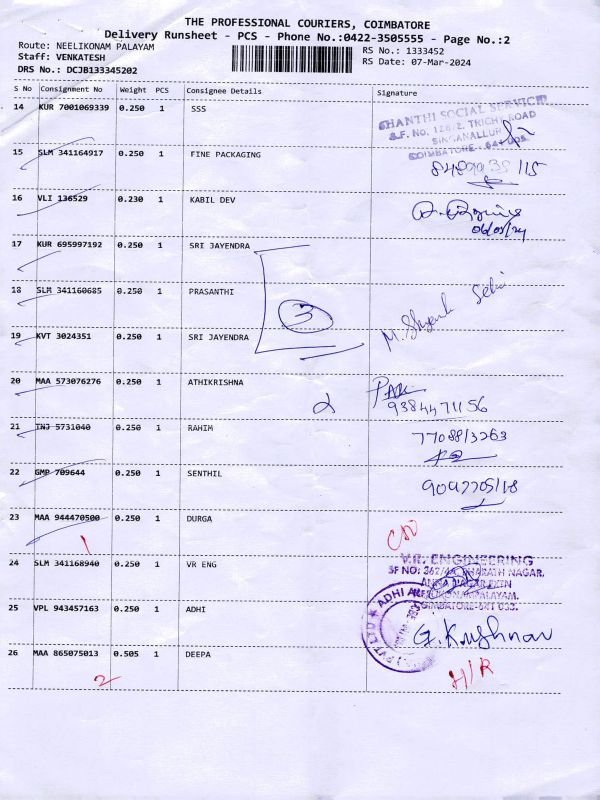 THE PROFESSIONAL COURIERS, COIMBATORE
Delivery Runsheet - PCS - Phone No.:0422-3505555 - Page No.:2
Route: NEELIKONAM PALAYAM
Staff: VENKATESH
DRS No.: DCJB133345202
RS No.: 1333452
RS Date: 07-Mar-2024
S No Consignment No Weight PCS Consignee Details Signature
14 KUR 7001069339 0.250 1 SSS
SHANTHI SOCIAL SERVICE
S.F. No. 128/2, TRICHY ROAD
SINGANALLUR
COIMBATORE - 641 005
15 SLM 341164917 0.250 1 FINE PACKAGING
16 VLI 136529 0.230 1 KABIL DEV
06/03/24
17 KUR 695997192 0.250 1 SRI JAYENDRA
18 SLM 341160685 0.250 1 PRASANTHI
3
19 KVT 3024351 0.250 1 SRI JAYENDRA
20 MAA 573076276 0.250 1 ATHIKRISHNA
9384471156
21 TNJ 5731040 0.250 1 RAHIM
7708813263
22 GMP 709644 0.250 1 SENTHIL
23 MAA 944470500 0.250 1 DURGA
1
24 SLM 341168940 0.250 1 VR ENG
V.R. ENGINEERING
SF NO: 362/4A, BHARATH NAGAR,
25 VPL 943457163 0.250 1 ADHI
G. Krishnan
26 MAA 865075013 0.505 1 DEEPA
2